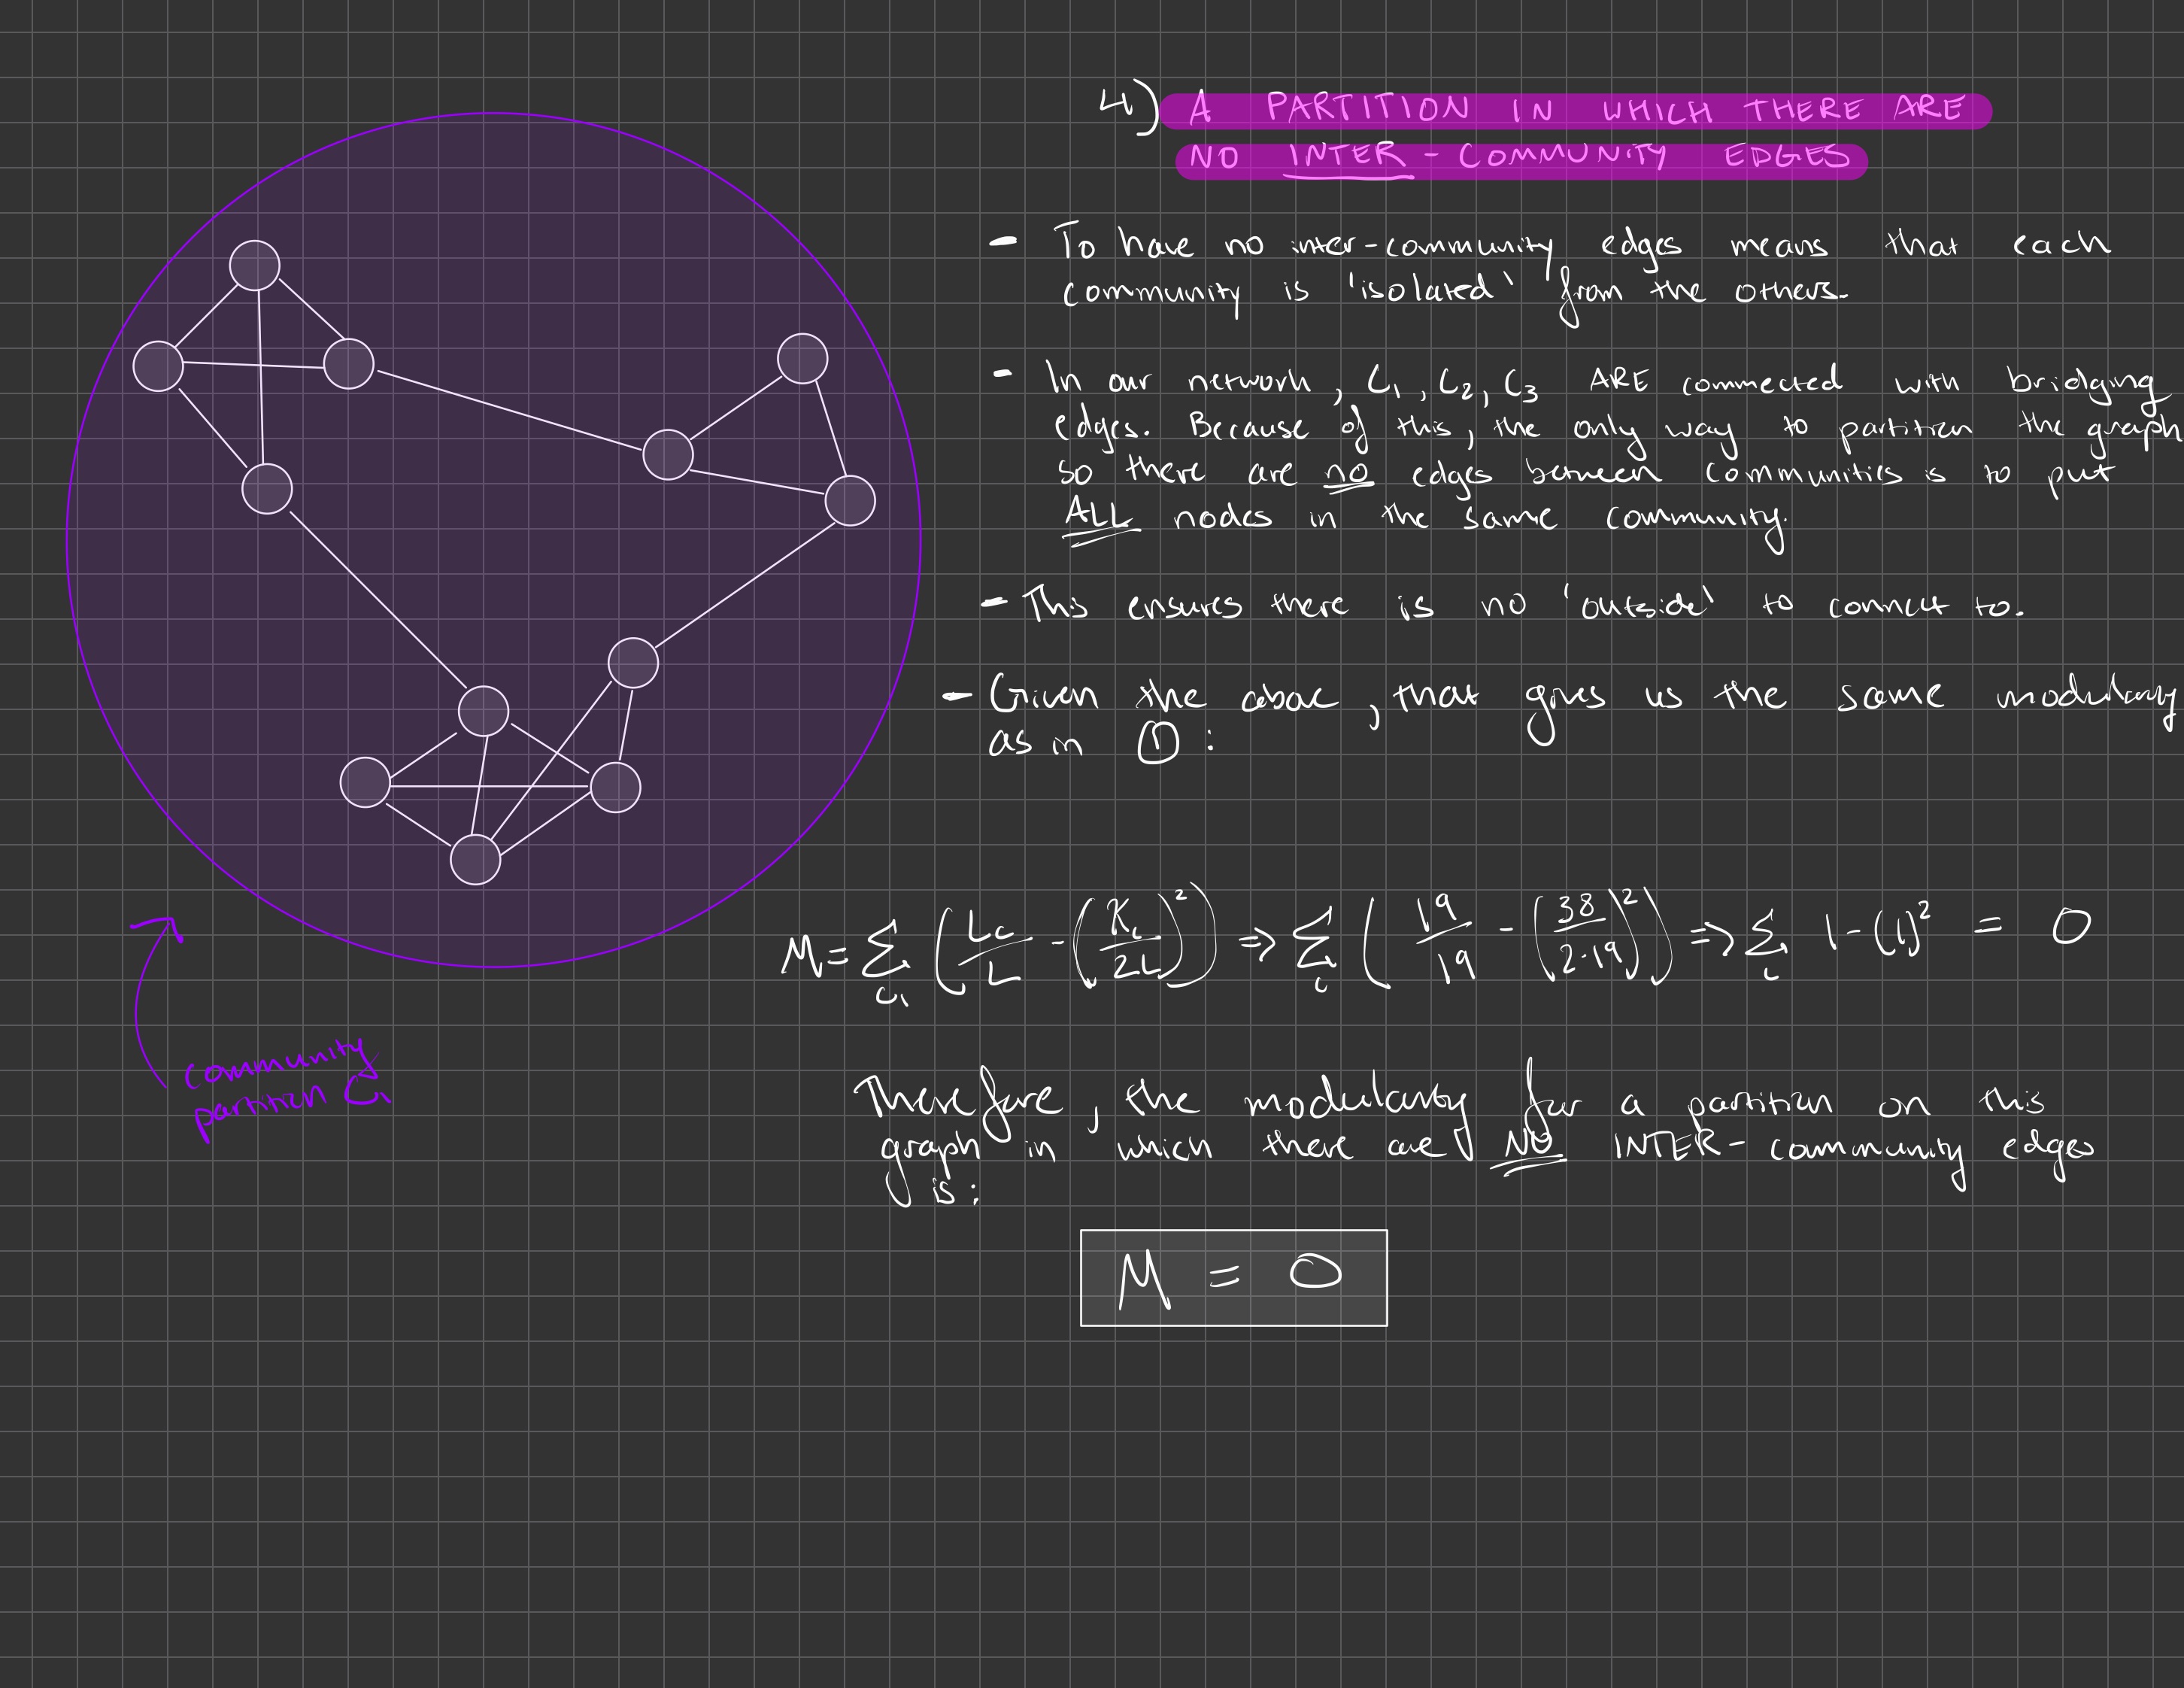 4) A PARTITION IN WHICH THERE ARE
NO INTER - COMMUNITY EDGES
- To have no inter-community edges means that each
community is 'isolated' from the others.
- In our network, C1, C2, C3 ARE connected with bridging
edges. Because of this, the only way to partition the graph
so there are no edges between communities is to put
ALL nodes in the same community.
- This ensures there is no 'outside' to connect to.
- Given the above, that gives us the same modularity
as in ①:
M = Σ_c (Lc/L - (Kc/2L)²) => Σ_c (19/19 - (38/2·19)²) => Σ_c 1 - (1)² = 0
community
partition
Therefore, the modularity for a partition on this
graph in which there are NO INTER - community edges
is:
M = 0